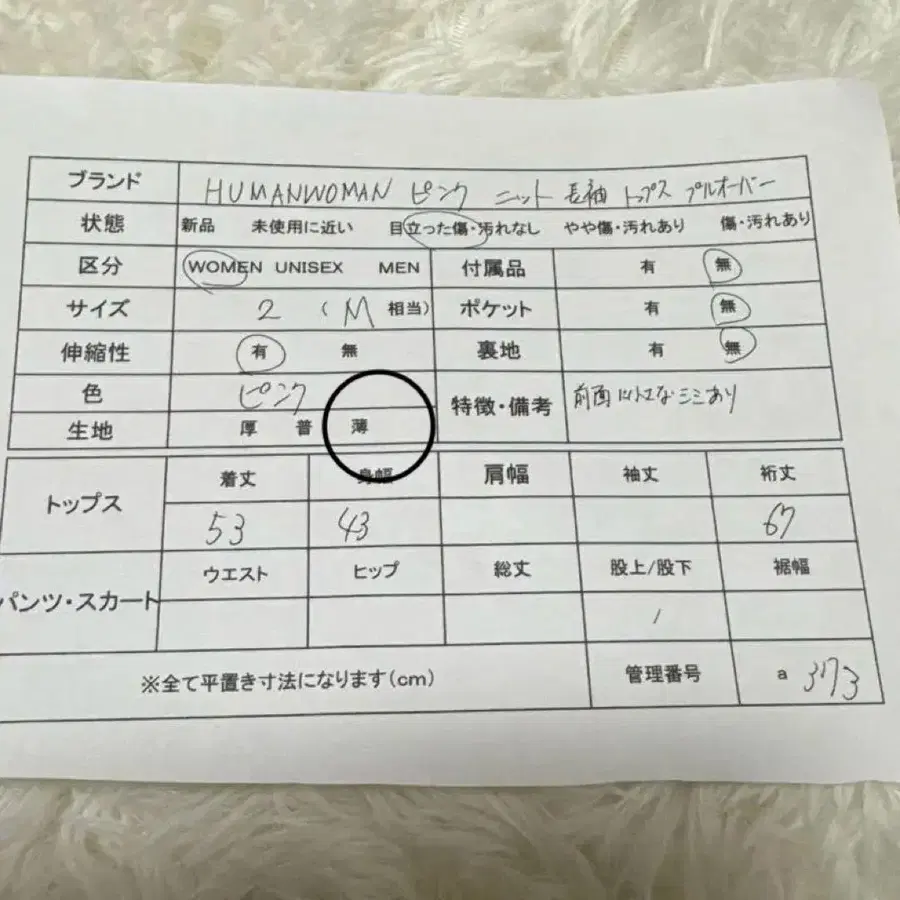 ブランド HUMANWOMAN ピンク ニット 長袖 トップス プルオーバー
状態 新品 未使用に近い 目立った傷・汚れなし やや傷・汚れあり 傷・汚れあり
区分 WOMEN UNISEX MEN 付属品 有 無
サイズ 2 (M 相当) ポケット 有 無
伸縮性 有 無 裏地 有 無
色 ピンク 特徴・備考 前面に小さなシミあり
生地 厚 普 薄
トップス 着丈 身幅 肩幅 袖丈 裄丈
53 43 67
パンツ・スカート ウエスト ヒップ 総丈 股上/股下 裾幅
/
※全て平置き寸法になります(cm) 管理番号 a 373